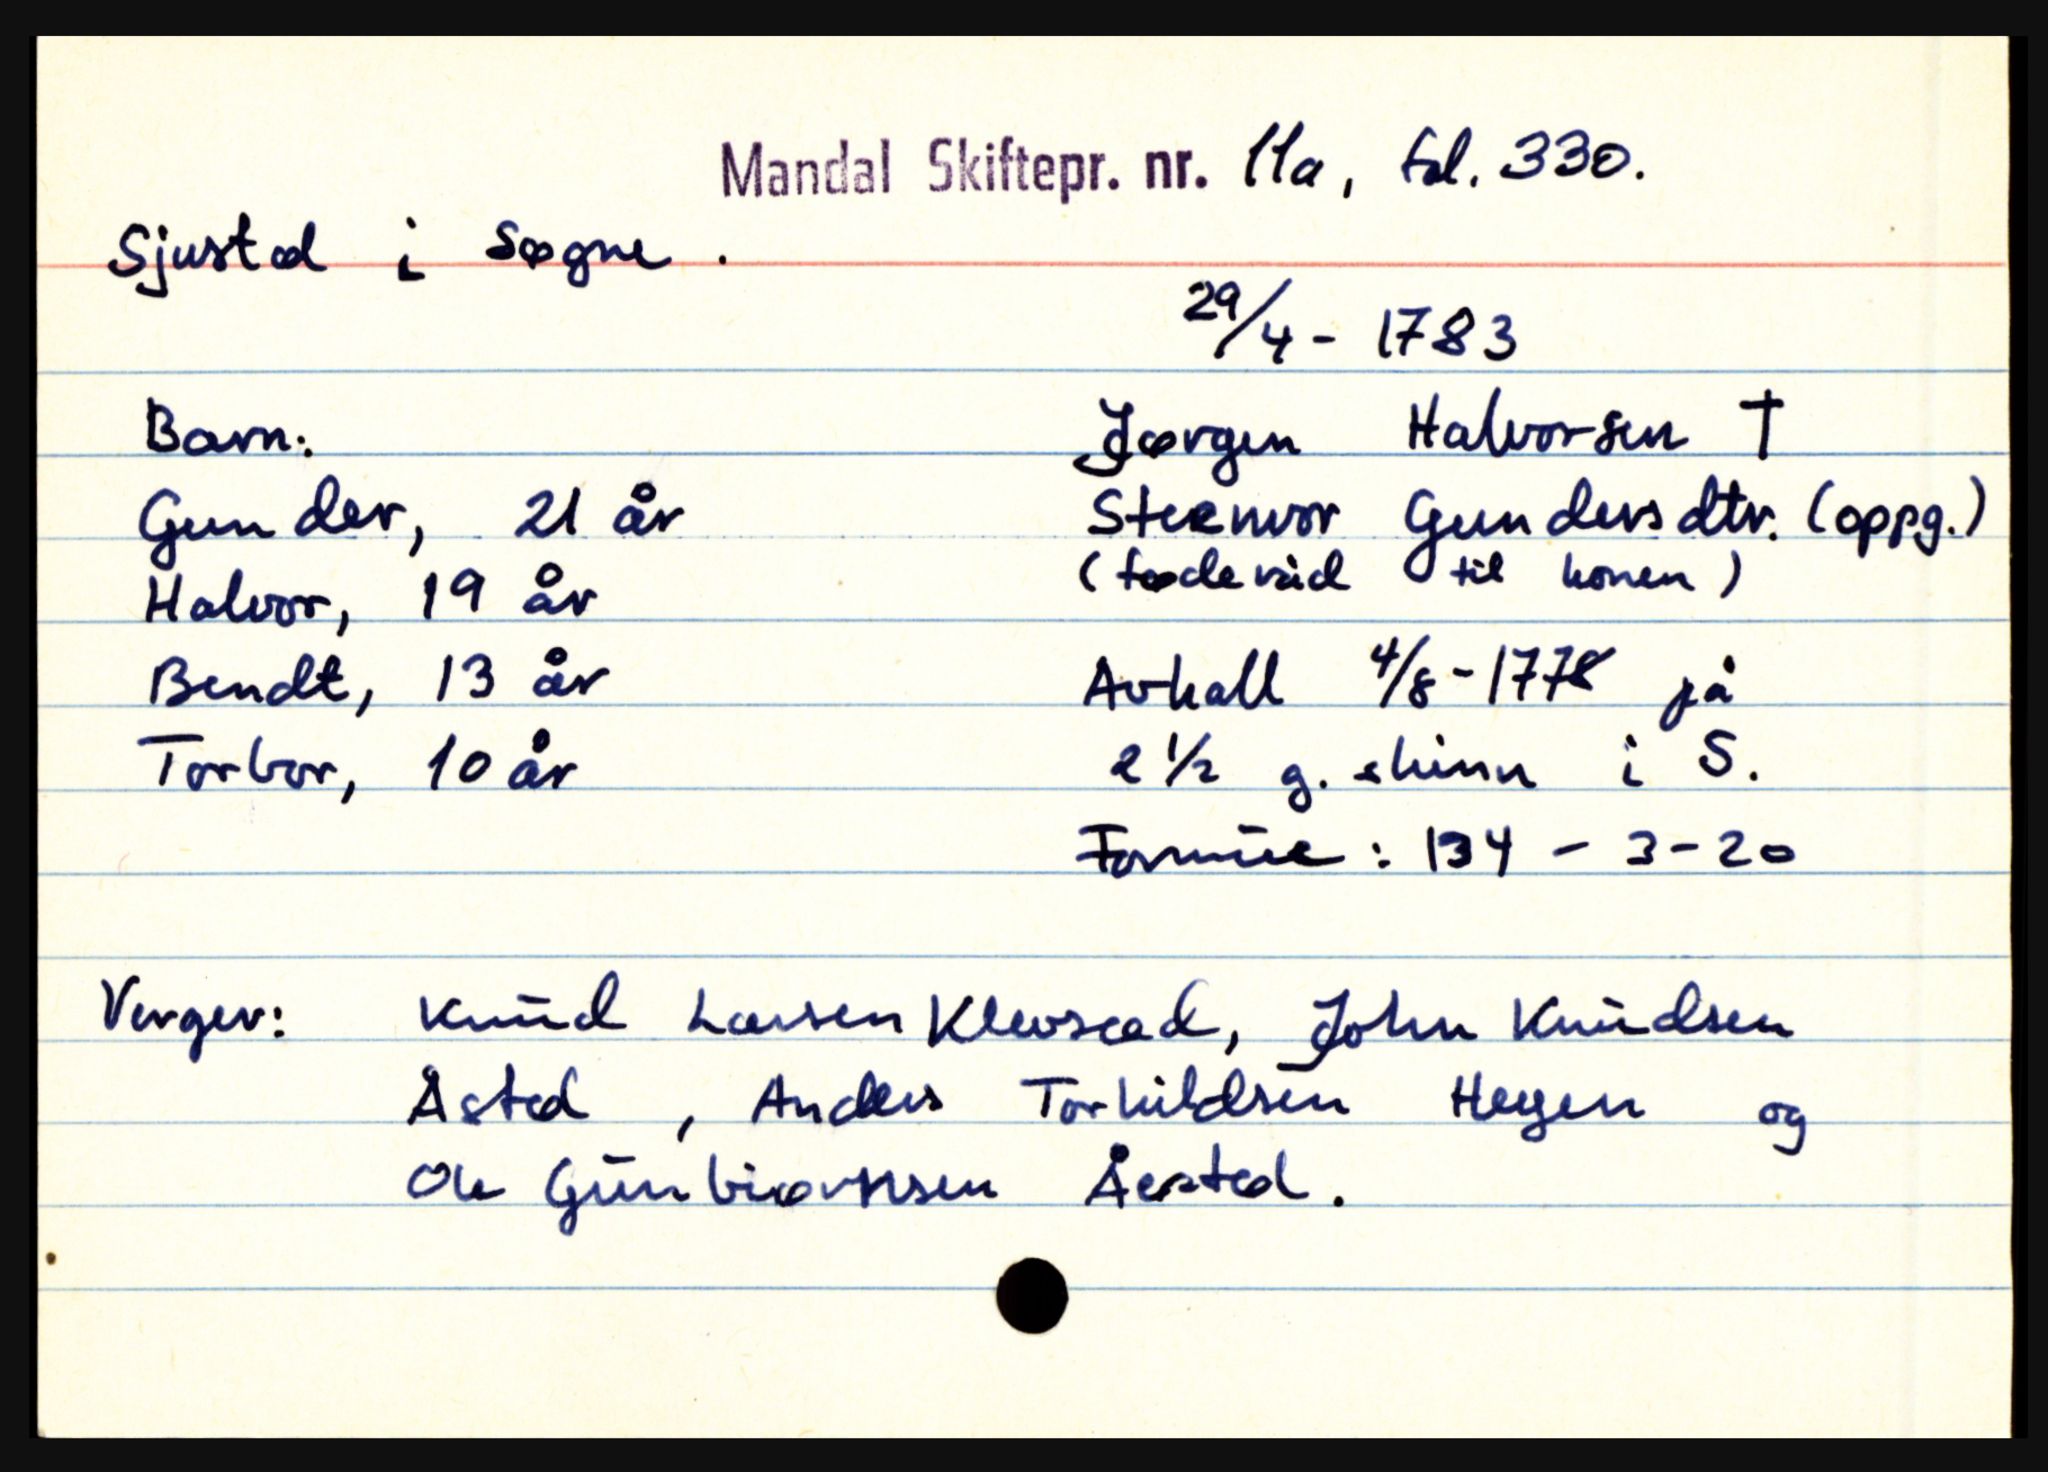 Mandal Skiftepr. nr. 11a, fol. 330.
Sjustøl i Søgne.
29/4 - 1783
Barn:
Gunder, 21 år
Halvor, 19 år
Bendt, 13 år
Torbor, 10 år
Jørgen Halvorsen †
Steenvor Gundersdtr. (oppg.)
(føderåd til konen)
Avkall 4/8 - 1778 på
2 1/2 g. skinn i S.
Formūe : 134 - 3 - 20
Verger: Knūd Larsen Klevsæd, John Knūdsen
Åsted, Anders Torkildsen Heyen og
Ole Gūnbiørnsen Åersted.